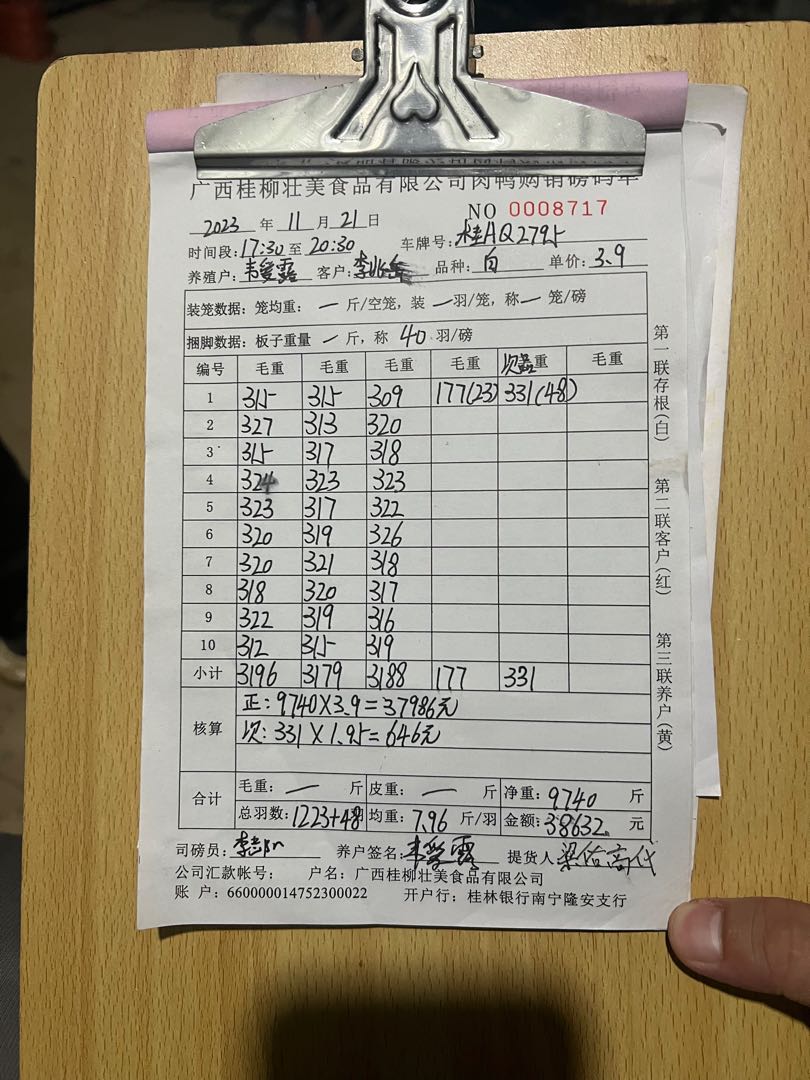 广西桂柳壮美食品有限公司肉鸭购销磅码单
2023 年 11 月 21 日 NO 0008717
时间段:17:30 至 20:30 车牌号:桂AQ2795
养殖户: 客户: 品种: 白 单价: 3.9
装笼数据: 笼均重: 一 斤/空笼, 装 一 羽/笼, 称 一 笼/磅
捆脚数据: 板子重量 一 斤, 称 40 羽/磅
编号 毛重 毛重 毛重 毛重 次品重 毛重
1 315 315 309 177(23) 331(48)
2 327 313 320
3 315 317 318
4 324 323 323
5 323 317 322
6 320 319 326
7 320 321 318
8 318 320 317
9 322 319 316
10 312 315 319
小计 3196 3179 3188 177 331
核算 正: 9740×3.9=37986元
次: 331×1.95=646元
合计 毛重: 一 斤 皮重: 一 斤 净重: 9740 斤
总羽数: 1223+48 均重: 7.96 斤/羽 金额: 38632 元
司磅员: 养户签名: 提货人
公司汇款帐号: 户名: 广西桂柳壮美食品有限公司
账 户: 660000014752300022 开户行: 桂林银行南宁隆安支行
第一联存根(白)
第二联客户(红)
第三联养户(黄)